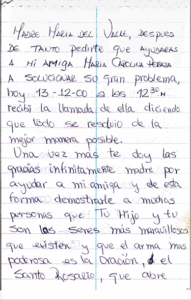 MADRE MARIA DEL VALLE, DESPUES
DE TANTO pedirte que AYUDARAS
A MI AMIGA MARIA CAROLINA
A SOLUCIONAR su gran problema,
hoy 13-12-00 A LAS 12:30
recibí la llamada de ella diciendo
que todo se resolvio de la
mejor manera posible.
Una vez más te doy las
gracias infinitamente madre por
ayudar a mi amiga y de esta
forma demostrarle a muchas
personas que Tu Hijo y tu
son los seres más maravillosos
que existen y que el arma más
poderosa es la Oración, el
Santo Rosario, que abre